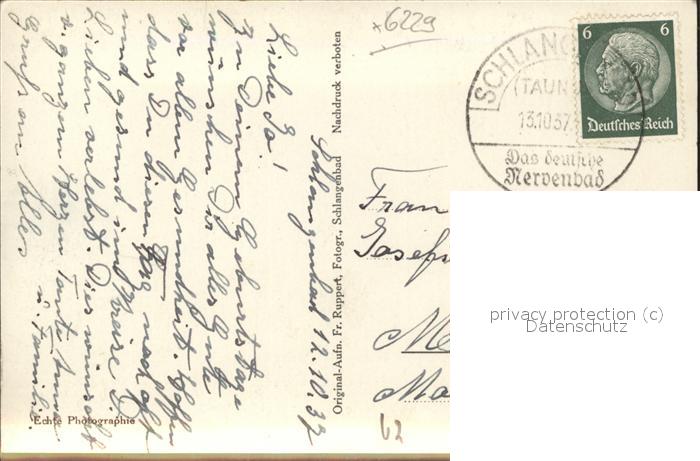 Schlangenbad 12.10.37
Liebe Ja!
Zu Deinem Geburtstage
wünschen wir alles Gute
vor allem Gesundheit. Hoffen
dass Du diesen Tag noch oft
und gesund im Kreise D.
Lieben verlebst. Dies wünscht
v. ganzem Herzen Tante Anna
u. Familie.
Gruß an Alles
Echte Photographie
Original-Aufn. Fr. Ruppert, Fotogr., Schlangenbad Nachdruck verboten
*6229
SCHLANG
(TAUN
13.10.37
Das deutsche
Nervenbad
6 6
Deutsches Reich
Frau
Josefi
Ma
privacy protection (c)
Datenschutz